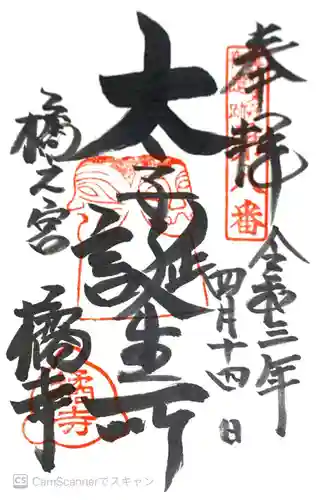 奉拝
令和三年
四月十四日
太子誕生所
橘之宮
橘寺
番
橘寺
CS CamScannerでスキャン